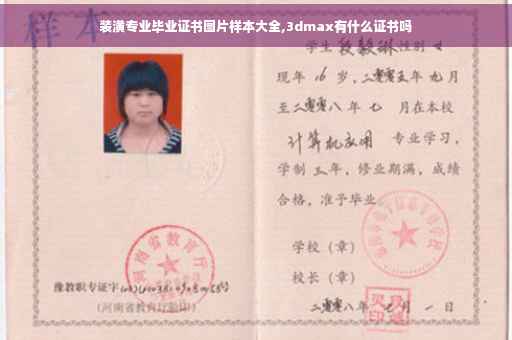 装潢专业毕业证书图片样本大全,3dmax有什么证书吗
样本
学生 段毅琳 性别 女
现年 16 岁，二零零五年 九月
至二零零八年 七 月在本校
计算机应用 专业学习，
学制 三 年，修业期满，成绩
合格，准予毕业
学校（章）
河南省教育厅
校长（章）
豫教职专证字
（河南省教育厅验印）
二零零八年 月 一 日